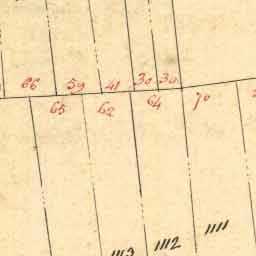 66 59 41 30 30
65 62 64 70
1113 1112 1111